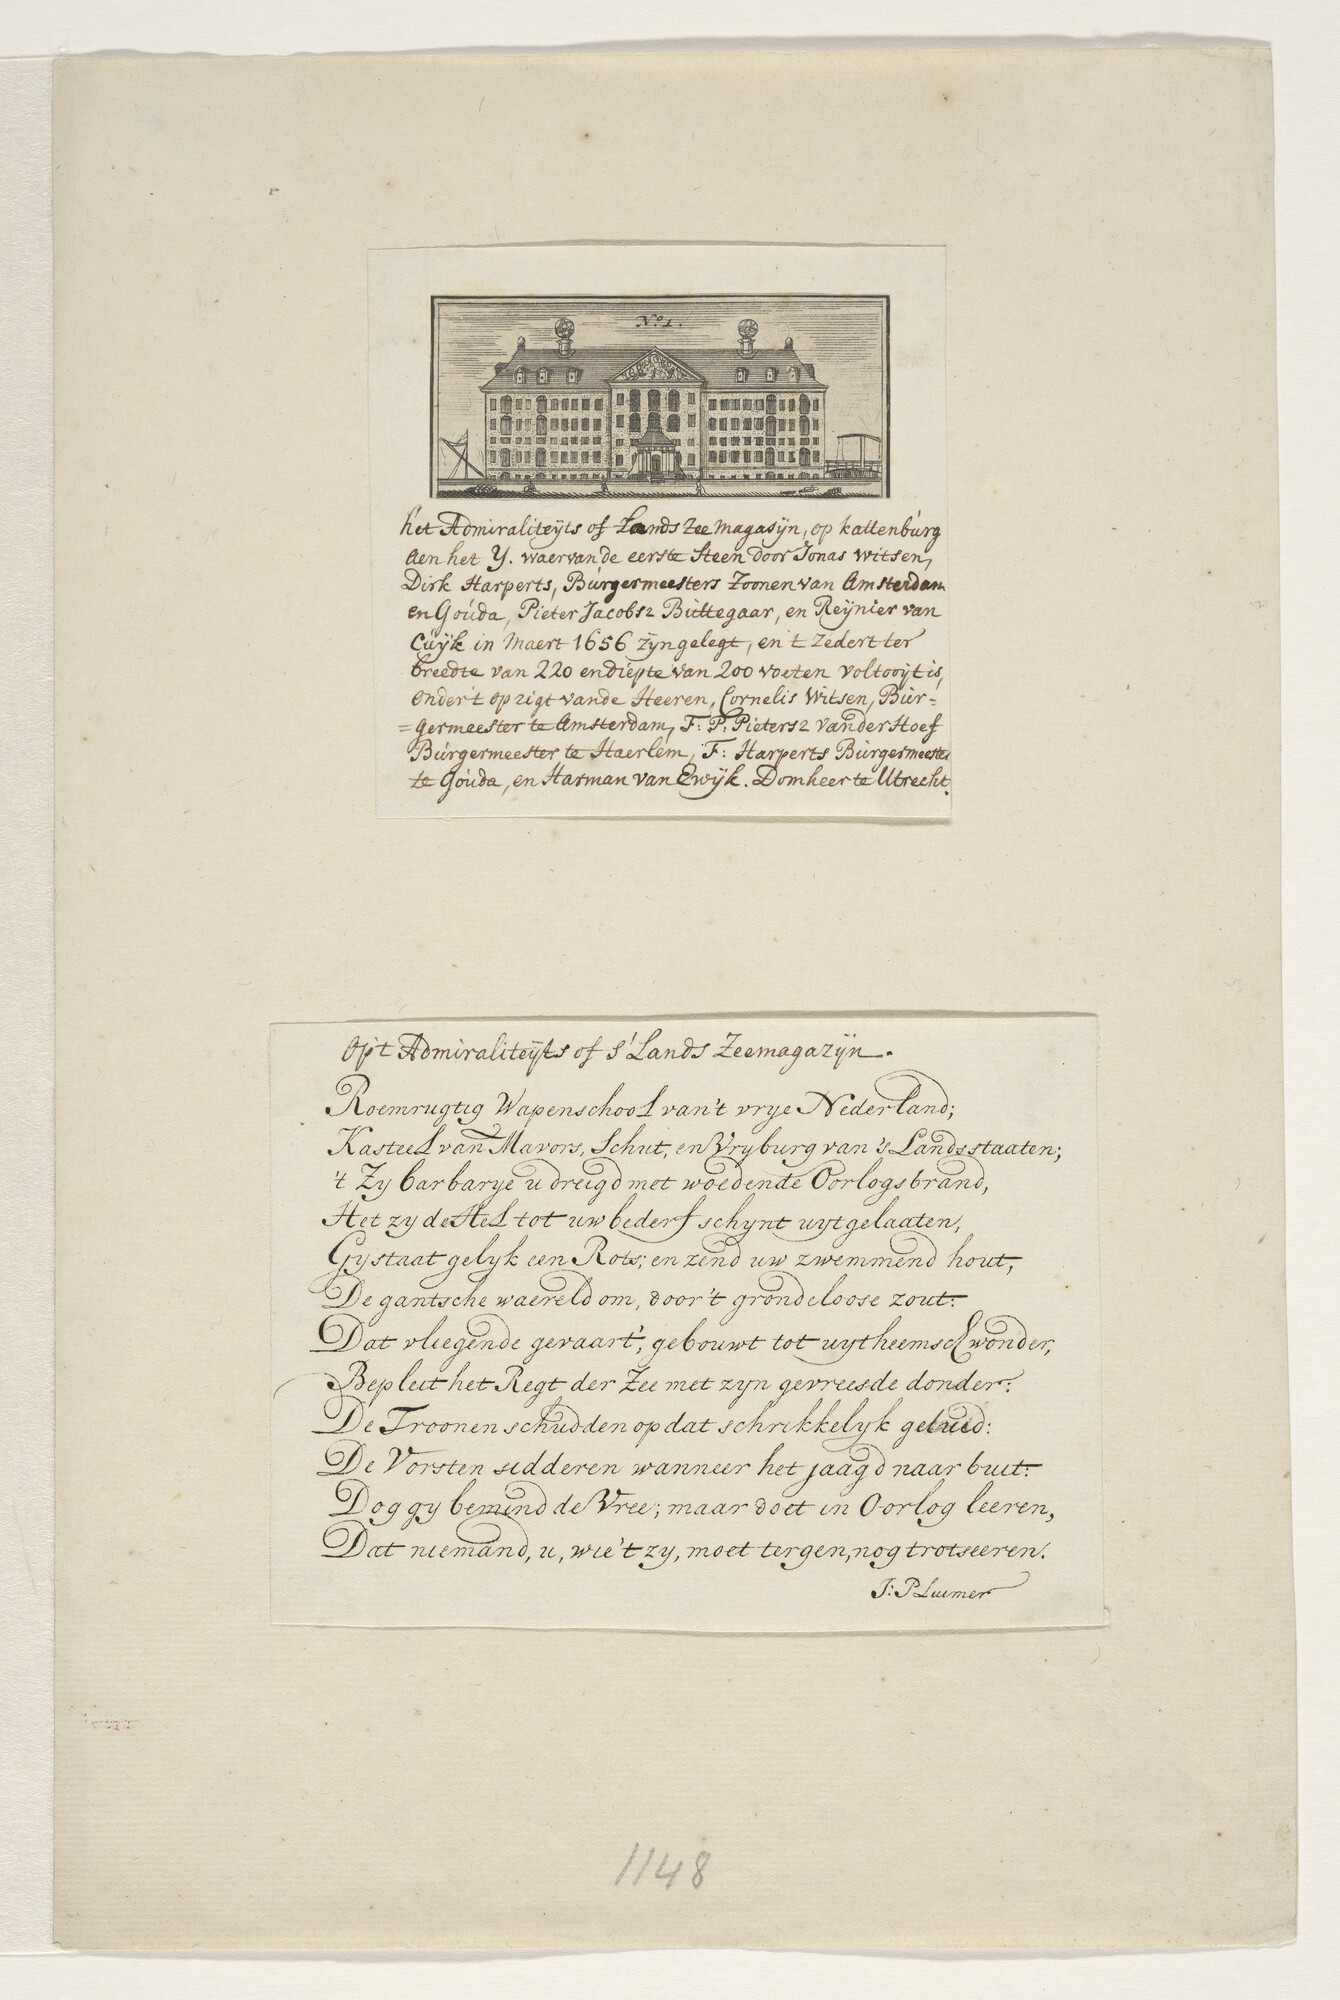 No 1.
het Admiraliteÿts of Lands Zee magasÿn, op kattenburg
aen het Y. waer van de eerste Steen door Jonas witsen,
Dirk Harperts, Burgermeesters Zoonen van Amsterdam
en Gouda, Pieter Jacobsz Buttegaar, en Reÿnier van
Cuÿk in Maert 1656 zÿn gelegt, en 't zedert ter
breedte van 220 en diepte van 200 voeten voltooÿt is,
onder 't opzigt van de Heeren, Cornelis Witsen, Bur=
=germeester te Amsterdam, F: P: Pietersz van der Hoef
Burgermeester te Haerlem, F: Harperts Burgermeester
te Gouda, en Harman van Ewÿk. Domheer te Utrecht.
Op't Admiraliteÿts of s' Lands Zeemagazÿn.
Roemrugtig Wapenschool van 't vrye Nederland;
Kasteel van Mavors, Schut, en Vryburg van 's Landsstaaten;
't Zy barbarye u dreigd met woedende Oorlogsbrand,
Het zy de Hel tot uw bederf schynt uytgelaaten,
Gy staat gelyk een Rots; en zend uw zwemmend hout,
De gantsche waereld om, door 't grondeloose zout:
Dat vliegende gevaart', gebouwt tot uytheemsch wonder,
Bepleit het Regt der Zee met zyn gevreesde donder:
De Troonen schudden op dat schrikkelyk geluid:
De Vorsten sidderen wanneer het jaagd naar buit:
Dog gy bemind de Vree; maar doet in Oorlog leeren,
Dat niemand, u, wie 't zy, moet tergen, nog trotseeren.
J: PLuimer
1148